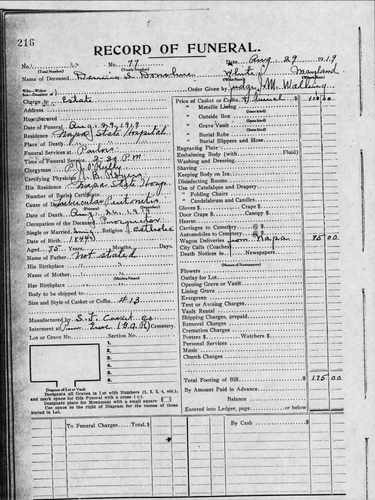 216
RECORD OF FUNERAL.
No. No. 77 Date Aug. 29 1919
(Total Number) (Yearly Number)
Name of Deceased Dennis S. Donohue White Maryland
Charge to Estate Order Given by Judge M. Walling
Address
How Secured
Date of Funeral Aug. 29, 1919
Place of Death Napa State Hospital
Funeral Services at Parlors
Time of Funeral Service 2:30 P.M.
Clergyman
Certifying Physician
His Residence Napa State Hosp.
Number of Burial Certificate
Cause of Death Tubercular Peritonitis
Date of Death Aug. 26, 1919
Occupation of the Deceased
Single or Married Sing Religion Catholic
Date of Birth (1844)
Aged 75 Years Months Days
Name of Father Not stated
His Birthplace
Name of Mother
Her Birthplace
Body to be shipped to
Size and Style of Casket or Coffin #13
Manufactured by S. F. Casket Co.
Interment at (G.A.R.) Cemetery.
Lot or Grave No. Section No.
1
2
3
4
5
6
Diagram of Lot or Vault
Designate all Graves in Lot with Numbers (1, 2, 3, 4, etc.), and mark space for this Funeral with a cross (+).
Designate place for Monument with a small square
Use space to the right of Diagram for the names of those buried in Lot.
Price of Casket or Coffin & burial 100 00
" Metallic Lining
" Outside Box
" Grave Vault
" Burial Robe
" Burial Slippers and Hose
Engraving Plate
Embalming Body (with Fluid)
Washing and Dressing
Shaving
Keeping Body on Ice
Disinfecting Rooms
Use of Catafalque and Drapery
" Folding Chairs
" Candelabrum and Candles
Gloves
Door Crape Hearse
Carriages to Cemetery @ $
Automobiles to Cemetery @ $
Wagon Deliveries from Napa 75 00
City Calls (Coaches)
Death Notices in Newspapers
Flowers
Outlay for Lot
Opening Grave or Vault
Lining Grave
Evergreen
Tent or Awning Charges
Vault Rental
Shipping Charges, prepaid
Removal Charges
Cremation Charges
Porters $ Watchers $
Personal Services
Music
Church Charges
Total Footing of Bill 175 00
By Amount Paid in Advance
Balance
Entered into Ledger, page or below
To Funeral Charges: Total By Cash